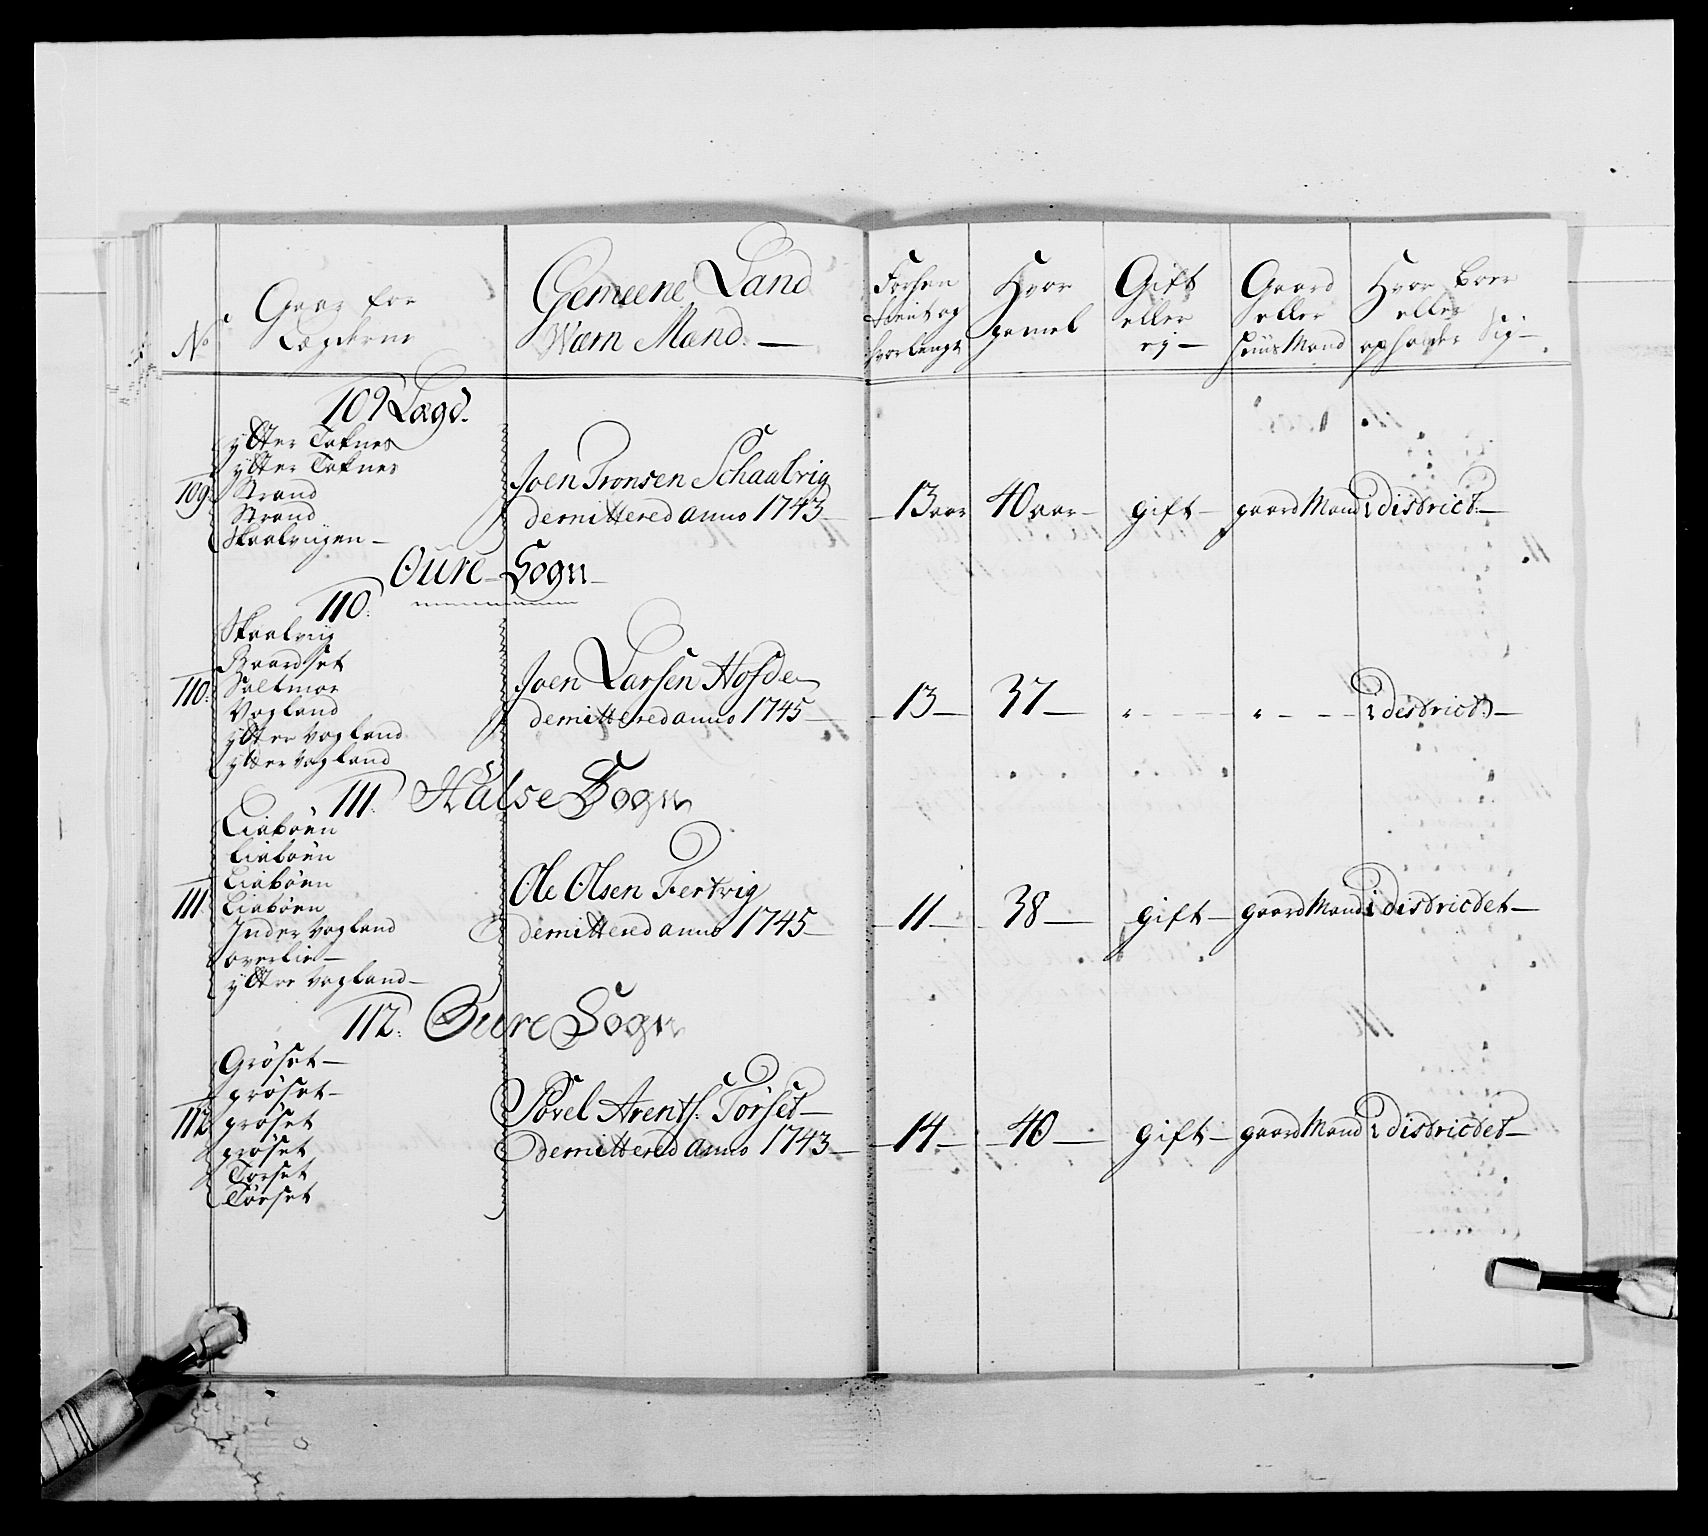 No
Gaar for
Lægderne
Gemeene Land
Wærn Mænd. —
Forhen
tient og
hvorlenge
Hvor
gamel
Gift
eller
ej —
Gaard
eller
huusMand
Hvor boer
eller
opholder Sig —
109 Lægd.
ytter Taknes
ytter Taknes
109.
Strand
Strand
Skaalvigen —
Joen Tronsen Schaalvig
demittered anno 1743 —
13 aar
40 aar —
gift —
gaard Mand
i district —
Oure Sogn —
110.
Skaalvig
Baardset
110.
Saltmor
Vogland
yttre Vogland
ytter Vogland
Joen Larsen Hofde
demittered anno 1745 —
13 —
37 —
" — — —
" — — —
i district —
111. Halse Sogn
Liabøen
Liabøen
Liabøen
111.
Liabøen
Inder Vogland
overlie —
yttre Vogland —
Ole Olsen Fertvig
demittered anno 1745 —
11 —
38 —
gift —
gaard Mand
i districtet —
112. Oure Sogn
Grøset —
grøset —
112
grøset
grøset
Tørset
Tørset
Povel Arents. Tørset —
demittered anno 1743 —
14 —
40 —
gift —
gaard Mand
i districtet —